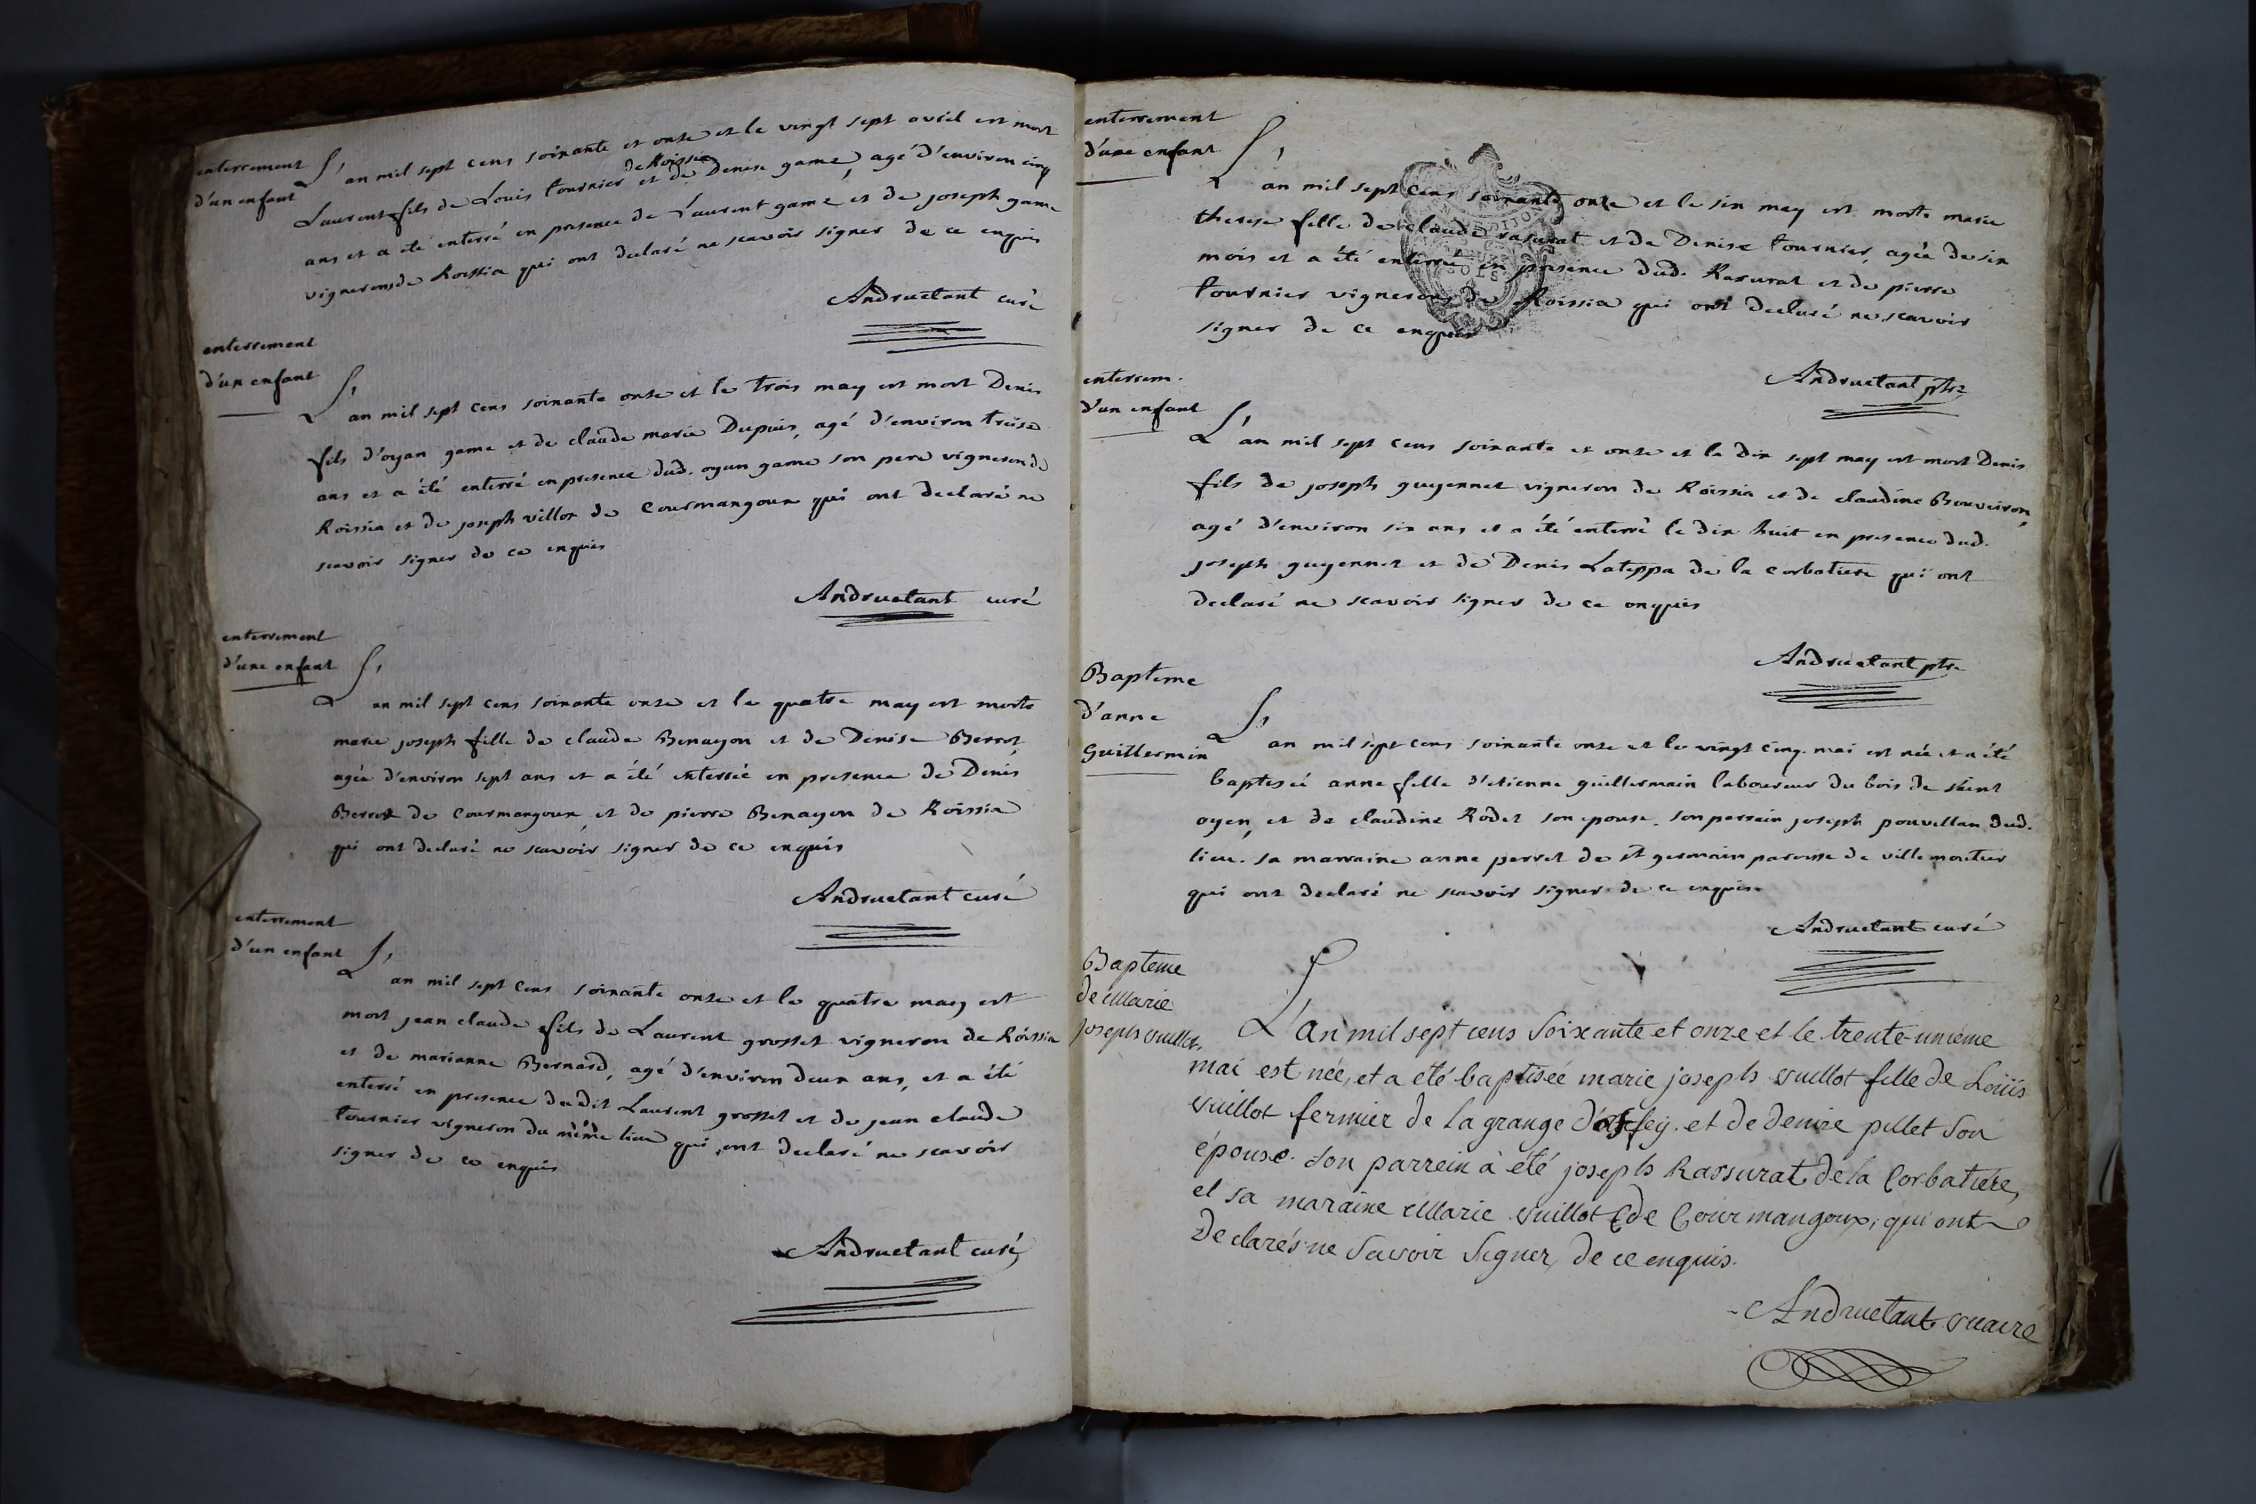 enterrement
d'un enfant
L'an mil sept cens soixante et onze et le vingt sept avril est mort
de Roissia
Laurent fils de Louis tournier et de Denise game, agé d'environ cinq
ans et a été enterré en presence de Laurent game et de joseph game
vignerons de Roissia qui ont declaré ne scavoir signer de ce enquis
Andruetant curé
enterrement
d'un enfant
L'an mil sept cens soixante onze et le trois may est mort Denis
fils d'oyan game et de claude marie Dupuis, agé d'environ treise
ans et a été enterré en presence dud. oyan game son pere vigneron de
Roissia et de joseph villot de Courmangoux qui ont declaré ne
scavoir signer de ce enquis
Andruetant curé
enterrement
d'une enfant
L'an mil sept cens soixante onze et le quatre may est morte
marie joseph fille de claude Benayon et de Denise Berrot
agée d'environ sept ans et a été enterrée en presence de Denis
Berrot de Courmangoux et de pierre Benayon de Roissia
qui ont declaré ne scavoir signer de ce enquis
Andruetant curé
enterrement
d'un enfant
L'an mil sept cens soixante onze et le quatre may est
mort jean claude fils de Laurent grosset vigneron de Roissia
et de marianne Bernard, agé d'environ deux ans, et a été
enterré en presence du dit Laurent grosset et de jean claude
tournier vigneron du même lieu qui ont declaré ne scavoir
signer de ce enquis
Andruetant curé
enterrement
d'une enfant
L'an mil sept cens soixante onze et le six may est morte marie
therese fille de claude rasurat et de Denise tournier, agée de six
mois et a été enterré en presence dud. Rasurat et de pierre
tournier vignerons de Roissia qui ont declaré ne scavoir
signer de ce enquis
Andruetant ptre
enterrem.
d'un enfant
L'an mil sept cens soixante et onze et le dix sept may est mort Denis
fils de joseph guyennet vigneron de Roissia et de claudine Bouveiron,
agé d'environ six ans et a été enterré le dix huit en presence dud.
joseph guyennet et de Denis Lateppa de la corbatiere qui ont
declaré ne scavoir signer de ce enquis
Andruetant ptre
Bapteme
d'anne
guillermin
L'an mil sept cens soixante onze et le vingt cinq mai est née et a été
baptisée anne fille d'etienne guillermain laboureur du bois de saint
oyen, et de claudine Rodet son epouse. son parrain joseph pouvillan dud.
lieu. sa marraine anne perret de st germain paroisse de villemoutier
qui ont declaré ne scavoir signer de ce enquis
Andruetant curé
Bapteme
de Marie
joseph vuillot
L'an mil sept cens soixante et onze et le trente-unieme
mai est née, et a eté baptisée marie joseph vuillot fille de Loüis
vuillot fermier de la grange d'asfey. et de denise pillet son
épouse. son parrein à été joseph Rassurat de la Corbatiere,
et sa maraine Marie vuillot de Courmangoux, qui ont
Declarés ne savoir signer, de ce enquis.
Andruetant vicaire